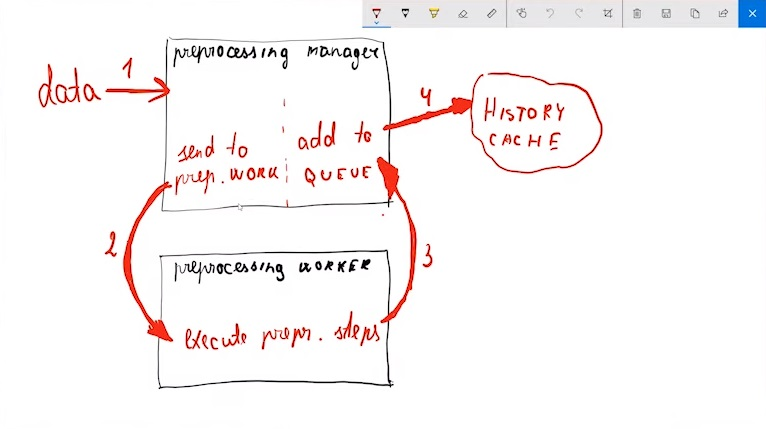 preprocessing manager
data
1
send to
prep. WORK
add to
QUEUE
4
HISTORY
CACHE
2
3
preprocessing WORKER
execute prepr. steps